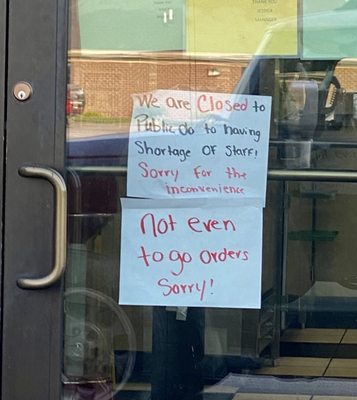 THANK YOU
JESSICA
MANAGER
We are Closed to
Public do to having
Shortage OF Staff!
Sorry For the
inconvenience
Not even
to go orders
Sorry!